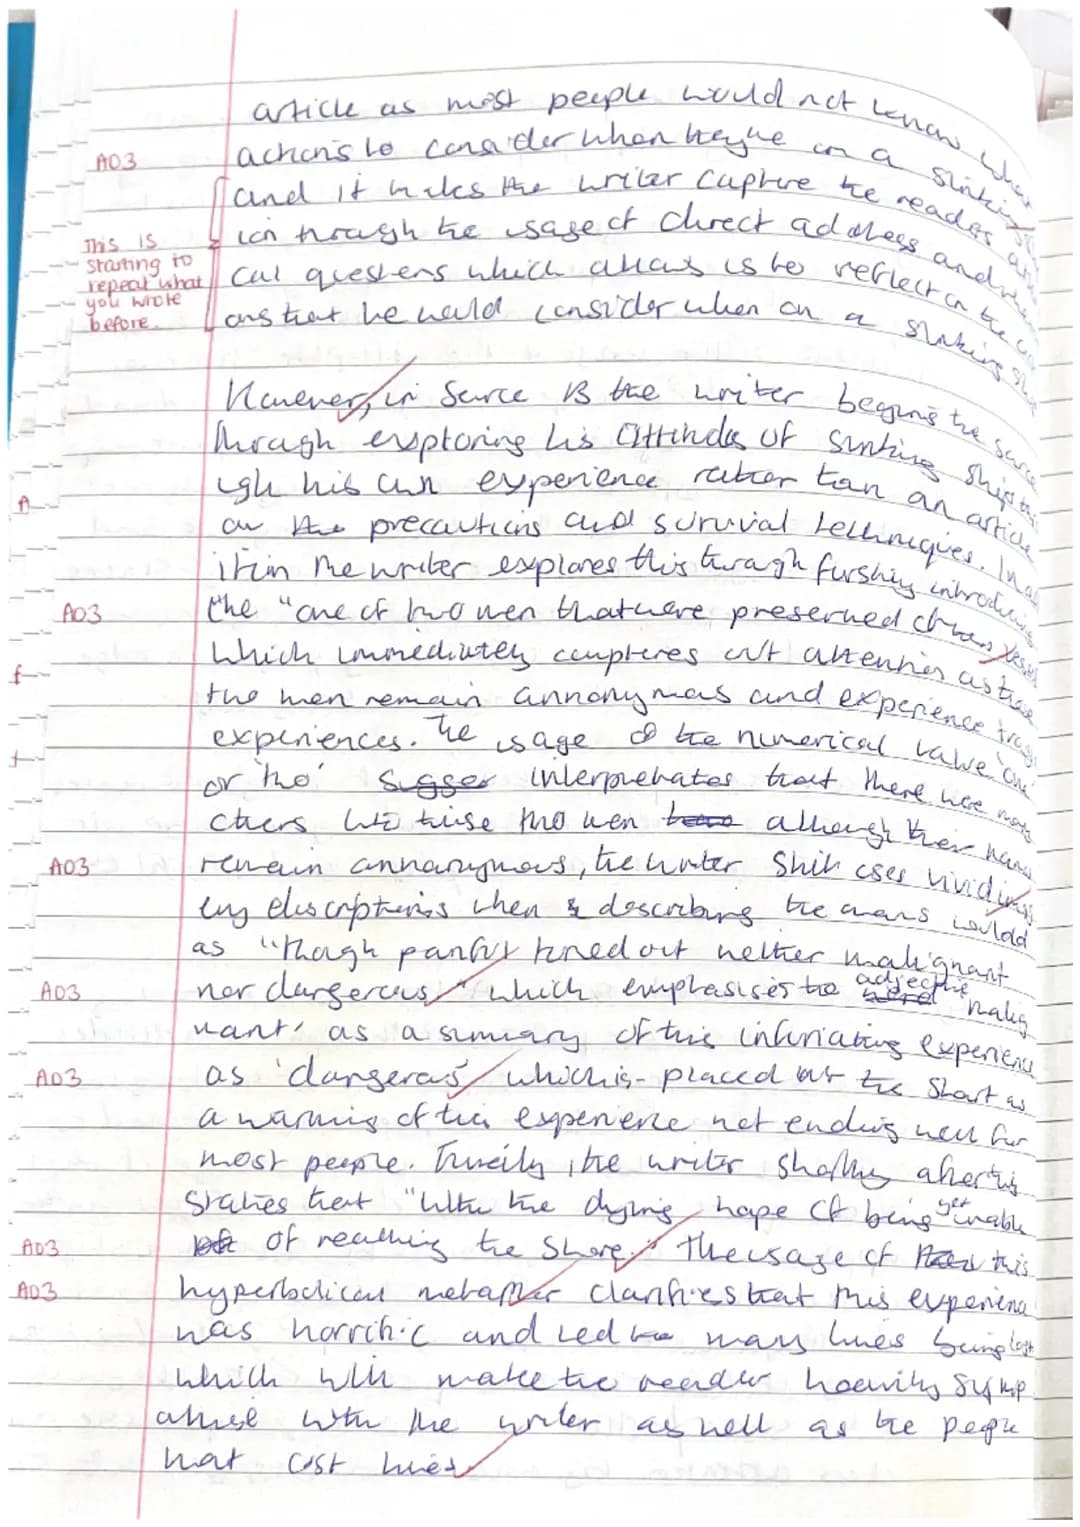 article as most people would not know what
AO3
actions to consider when they're on a sinking
and it makes the writer capture the readers
ion through the usage of direct address and
This is
starting to
repeat what
you wrote
before.
cal questions which allows us to reflect on the
ons that he would consider when on a sinking ship
However, in Source B the writer begins the source
through exploring his attitudes of sinking ships
ugh his own experience rather than an article
on the precautions and survival techniques. In
ition the writer explores this through furshly introducing
AO3
the "one of two men that were preserved
which immediately couptures out attention as
the men remain annonymas and experience
experiences. The usage of the numerical value 'one'
or 'two' interpretates that there were many
others like these two men although their
AO3
remain annanymous, the writer still uses vivid
descriptions when describing the mans
as "though painful turned out neither malignant
AO3
nor dangerous" which emphasises the adjective 'malig
nant' as a sumary of this infuriating experience
AO3
as 'dangerous' which is placed at the start as
a warning of this experience not ending well for
most people. the writer shortly after this
states that "with the dying hope of being yet unable
AO3
of reaching the shore." The usage of this
AO3
hyperbolical metaphor clarifies that this experience
was horrific and led to many lives being lost
which will make the reader heavily symp
athise with the writer as well as the people
that lost lives